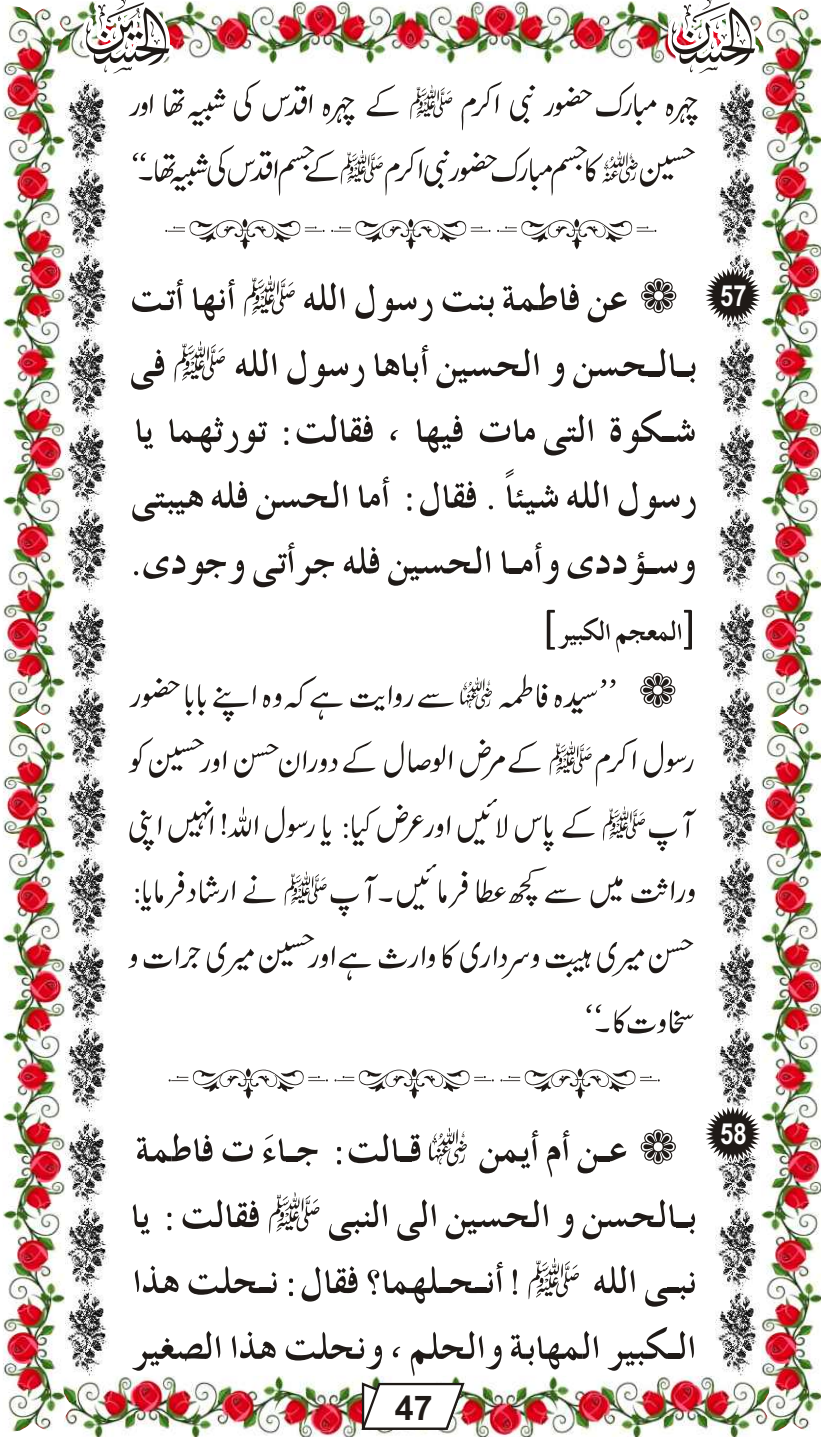 الحسنین الحسنین
چہرہ مبارک حضور نبی اکرم ﷺ کے چہرہ اقدس کی شبیہ تھا اور
حسین رضی اللہ عنہ کا جسم مبارک حضور نبی اکرم ﷺ کے جسم اقدس کی شبیہ تھا۔‘‘
57
❁ عن فاطمة بنت رسول الله ﷺ أنها أتت
بالحسن و الحسين أباها رسول الله ﷺ فى
شكوة التى مات فيها ، فقالت: تورثهما يا
رسول الله شيئاً . فقال: أما الحسن فله هيبتى
وسؤددى وأما الحسين فله جرأتى وجودى.
[المعجم الكبير]
❁ ’’سیدہ فاطمہ رضی اللہ عنہا سے روایت ہے کہ وہ اپنے بابا حضور
رسول اکرم ﷺ کے مرض الوصال کے دوران حسن اور حسین کو
آپ ﷺ کے پاس لائیں اور عرض کیا: یا رسول اللہ! انہیں اپنی
وراثت میں سے کچھ عطا فرمائیں۔ آپ ﷺ نے ارشاد فرمایا:
حسن میری ہیبت و سرداری کا وارث ہے اور حسین میری جرات و
سخاوت کا۔‘‘
58
❁ عن أم أيمن رضی اللہ عنہا قالت: جاءَ ت فاطمة
بالحسن و الحسين الى النبى ﷺ فقالت: يا
نبى الله ﷺ ! أنحلهما؟ فقال: نحلت هذا
الكبير المهابة والحلم ، ونحلت هذا الصغير
47